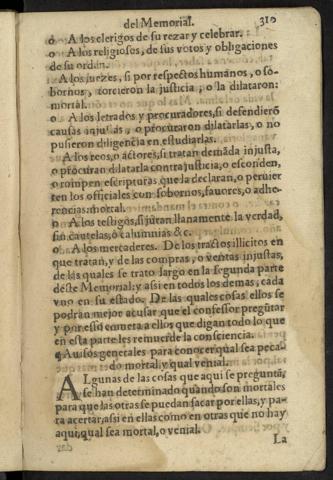 del Memorial. 310
o A los clerigos de su rezar y celebrar.
o A los religiosos, de sus votos y obligaciones
de su orden.
A los juezes, si por respectos humanos, o so-
bornos, torcieron la justicia, o la dilataron:
mortal.
o A los letrados y procuradores, si defendierõ
causas injustas, o procuraron dilatarlas, o no
pusieron diligencia en estudiarlas.
A los reos, o actores, si tratan demãda injusta,
o procuran dilatarla contra justicia, o esconden,
o rompen escripturas que la declaran, o peruier
ten los officiales con sobornos, fauores, o adhe-
rencias: mortal.
o A los testigos, si juran llanamente la verdad,
sin cautelas, o calumnias &c.
o A los mercaderes. De los tractos illicitos en
que tratan, y de las compras, o ventas injustas,
de las quales se trato largo en la segunda parte
deste Memorial: y assi en todos los demas, cada
vno en su estado. De las quales cosas ellos se
podran mejor acusar que el confessor pregũtar
y por esso en
a ellos que digan todo lo que
en esta parte les remuerde la consciencia.
¶ Auisos generales para conocer qual sea peca-
do mortal, y qual venial.
ALgunas de las cosas que aqui se preguntã,
se han determinado quando son mortales
para que las otras se puedan sacar por ellas, y pa-
ra acertar, assi en ellas como en otras que no hay
aqui, qual sea mortal, o venial.
La